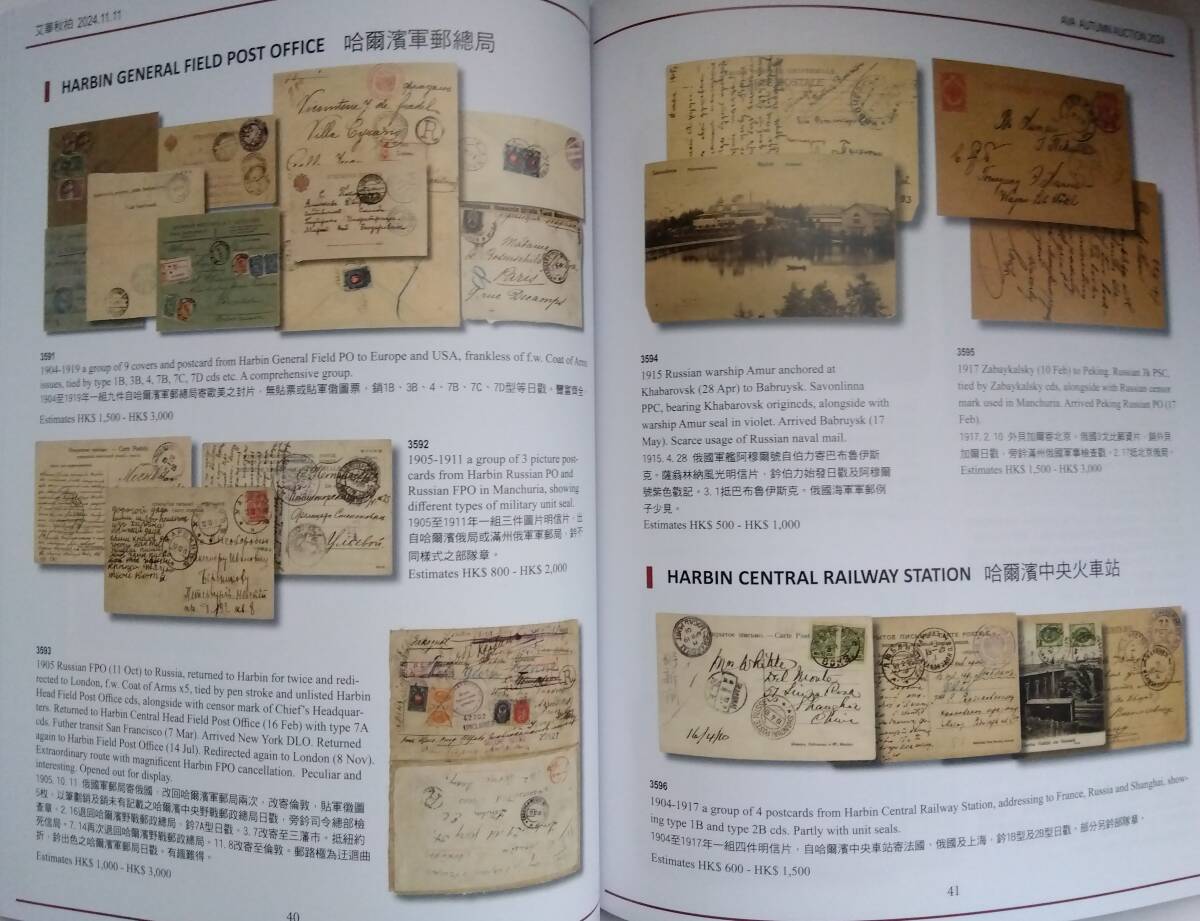 艾華秋拍 2024.11.11
HARBIN GENERAL FIELD POST OFFICE 哈爾濱軍郵總局
3591
1904-1919 a group of 9 covers and postcard from Harbin General Field PO to Europe and USA, frankless of f.w. Coat of Arms
issues, tied by type 1B, 3B, 4, 7B, 7C, 7D cds etc. A comprehensive group.
1904至1919年一組九件自哈爾濱軍郵總局寄歐美之封片，無貼票或貼軍徽圖票，銷1B、3B、4、7B、7C、7D型等日戳。豐富齊全。
Estimates HK$ 1,500 - HK$ 3,000
3592
1905-1911 a group of 3 picture post-
cards from Harbin Russian PO and
Russian FPO in Manchuria, showing
different types of military unit seal.
1905至1911年一組三件圖片明信片，出
自哈爾濱俄局或滿州俄軍軍郵局，鈐不
同樣式之部隊章。
Estimates HK$ 800 - HK$ 2,000
3593
1905 Russian FPO (11 Oct) to Russia, returned to Harbin for twice and redi-
rected to London, f.w. Coat of Arms x5, tied by pen stroke and unlisted Harbin
Head Field Post Office cds, alongside with censor mark of Chief's Headquar-
ters. Returned to Harbin Central Head Field Post Office (16 Feb) with type 7A
cds. Futher transit San Francisco (7 Mar). Arrived New York DLO. Returned
again to Harbin Field Post Office (14 Jul). Redirected again to London (8 Nov).
Extraordinary route with magnificent Harbin FPO cancellation. Peculiar and
interesting. Opened out for display.
1905. 10. 11 俄國軍郵局寄俄國，改回哈爾濱軍郵局兩次，改寄倫敦，貼軍徽圖
5枚，以筆劃銷及銷未有記載之哈爾濱中央野戰郵政總局日戳，旁鈐司令總部檢
查章。2.16退回哈爾濱野戰郵政總局，鈐7A型日戳。3.7改寄至三藩市。抵紐約
死信局。7.14再次退回哈爾濱野戰郵政總局，11. 8改寄至倫敦。郵路極為迂迴曲
折，鈐出色之哈爾濱軍郵局日戳。有趣難得。
Estimates HK$ 1,000 - HK$ 3,000
40
AVA AUTUMN AUCTION 2024
3594
1915 Russian warship Amur anchored at
Khabarovsk (28 Apr) to Babruysk. Savonlinna
PPC, bearing Khabarovsk origincds, alongside with
warship Amur seal in violet. Arrived Babruysk (17
May). Scarce usage of Russian naval mail.
1915. 4. 28 俄國軍艦阿穆爾號自伯力寄巴布魯伊斯
克。薩翁林納風光明信片，鈐伯力始發日戳及阿穆爾
號紫色戳記。3. 1抵巴布魯伊斯克。俄國海軍軍郵例
子少見。
Estimates HK$ 500 - HK$ 1,000
3595
1917 Zabaykalsky (10 Feb) to Peking. Russian 3k PSC,
tied by Zabaykalsky cds, alongside with Russian censor
mark used in Manchuria. Arrived Peking Russian PO (17
Feb).
1917. 2. 10 外貝加爾寄北京。俄國3戈比郵資片，銷外貝
加爾日戳，旁鈐滿州俄國軍事檢查戳。2.17抵北京俄局。
Estimates HK$ 1,500 - HK$ 3,000
HARBIN CENTRAL RAILWAY STATION 哈爾濱中央火車站
3596
1904-1917 a group of 4 postcards from Harbin Central Railway Station, addressing to France, Russia and Shanghai, show-
ing type 1B and type 2B cds. Partly with unit seals.
1904至1917年一組四件明信片，自哈爾濱中央車站寄法國、俄國及上海，鈐1B型及2B型日戳。部分另鈐部隊章。
Estimates HK$ 600 - HK$ 1,500
41